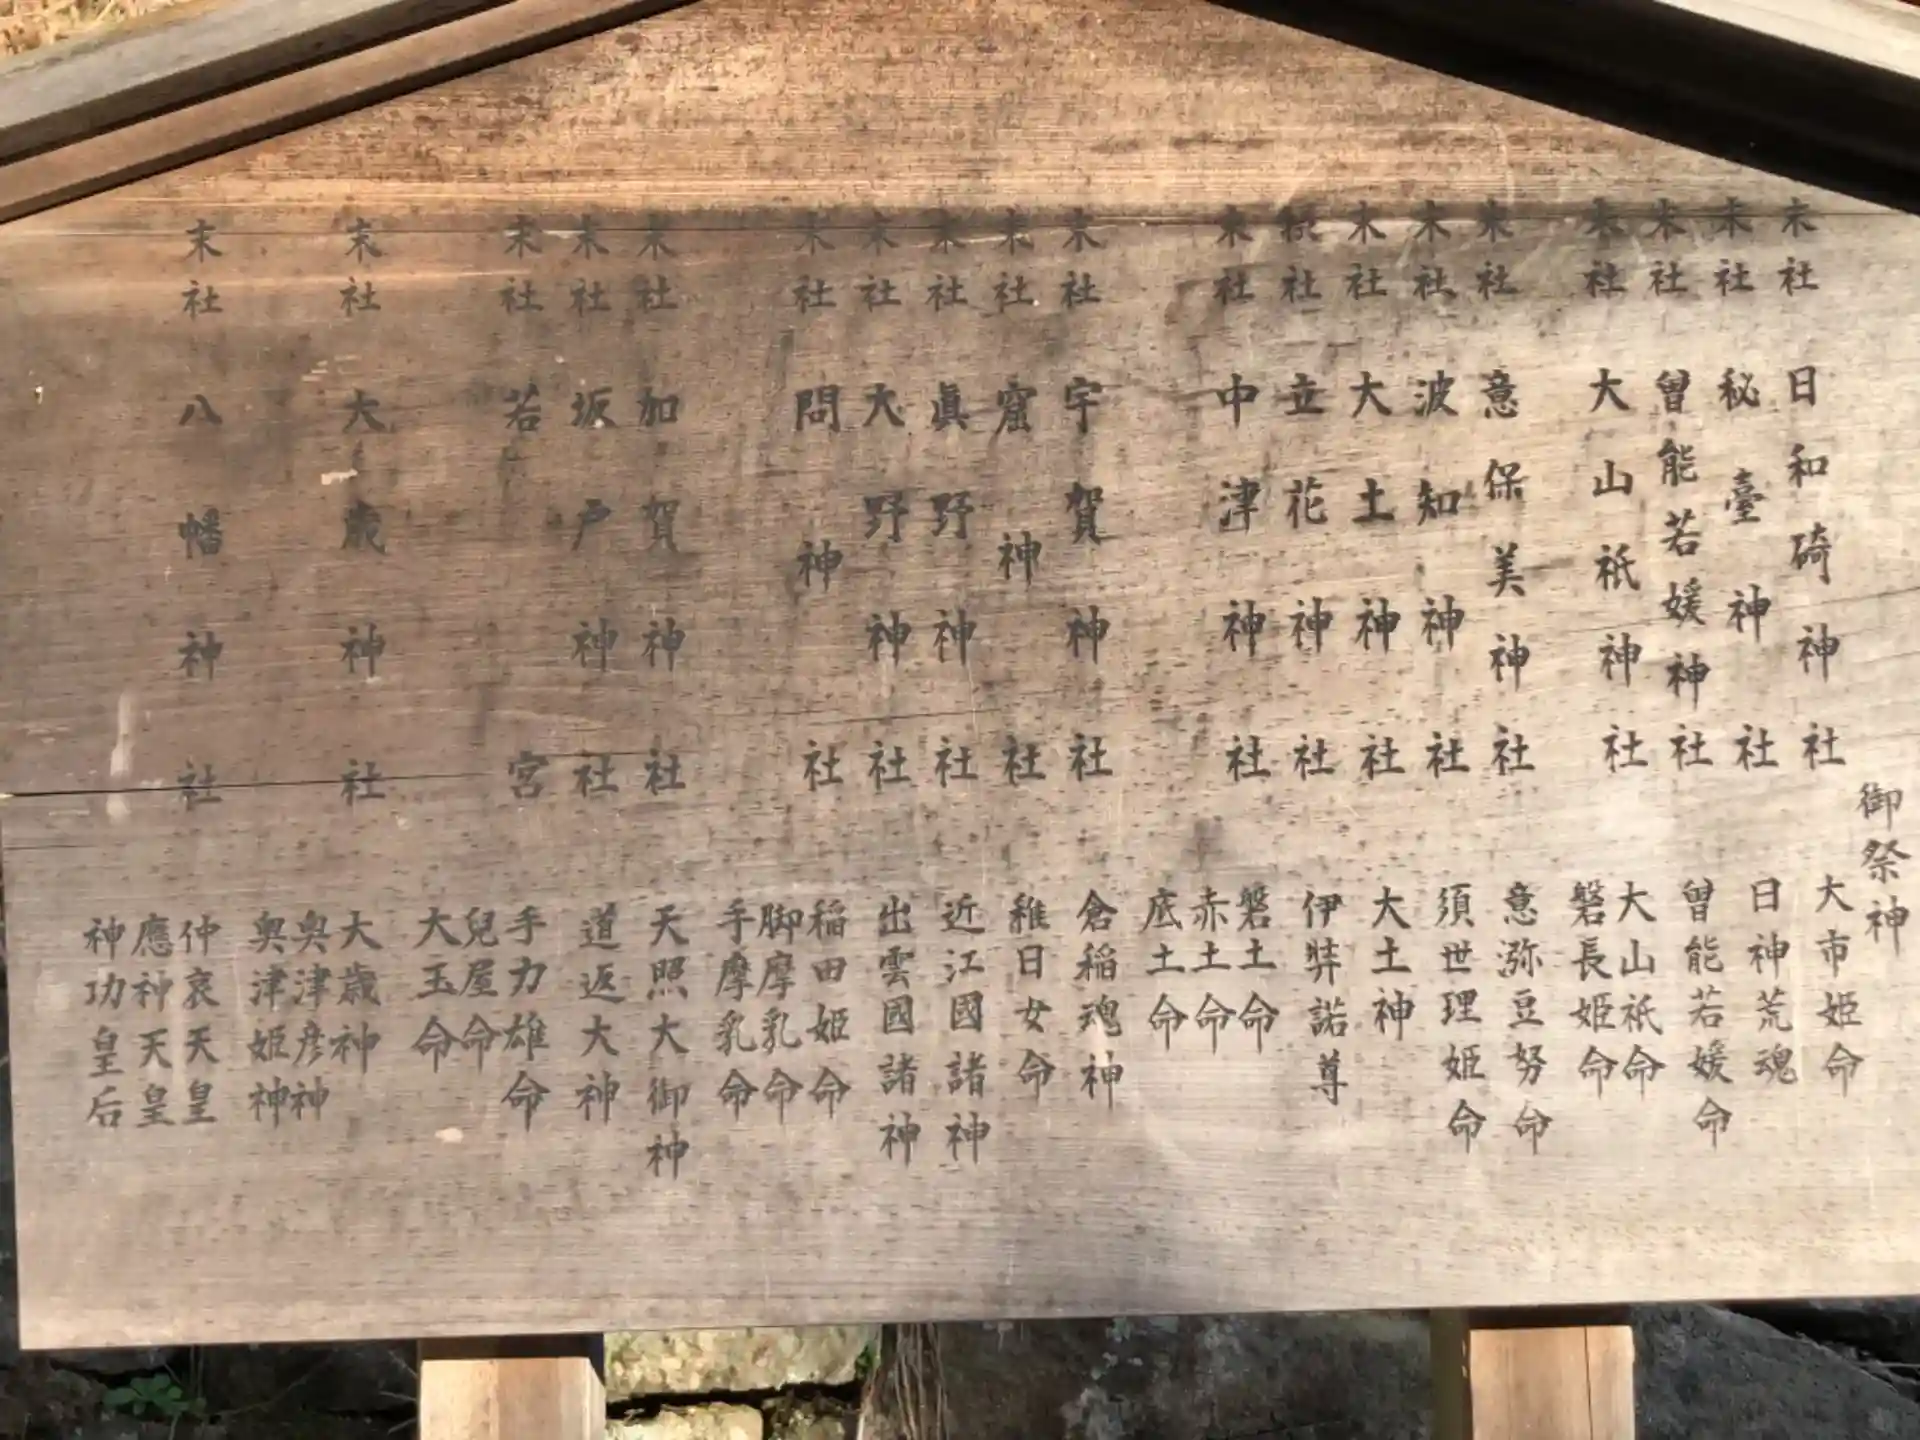 御祭神
末社 日和碕神社 大市姫命
末社 秘臺神社 日神荒魂
末社 曽能若媛神社 曽能若媛命
末社 大山祇神社 大山祇命
磐長姫命
末社 意保美神社 意弥豆努命
末社 波知神社 須世理姫命
末社 大土神社 大土神
摂社 立花神社 伊弉諾尊
末社 中津神社 磐土命
赤土命
底土命
末社 宇賀神社 倉稲魂神
末社 窟神社 稚日女命
末社 眞野神社 近江國諸神
末社 大野神社 出雲國諸神
末社 問神社 稲田姫命
脚摩乳命
手摩乳命
末社 加賀神社 天照大御神
末社 坂戸神社 道返大神
末社 若宮 手力雄命
兒屋命
大玉命
末社 大歳神社 大歳神
奥津彦神
奥津姫神
末社 八幡神社 仲哀天皇
應神天皇
神功皇后